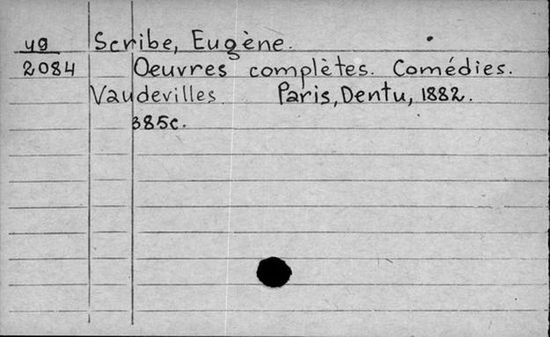 49 Scribe, Eugène.
2084 Oeuvres complètes. Comédies.
Vaudevilles Paris, Dentu, 1882.
385c.